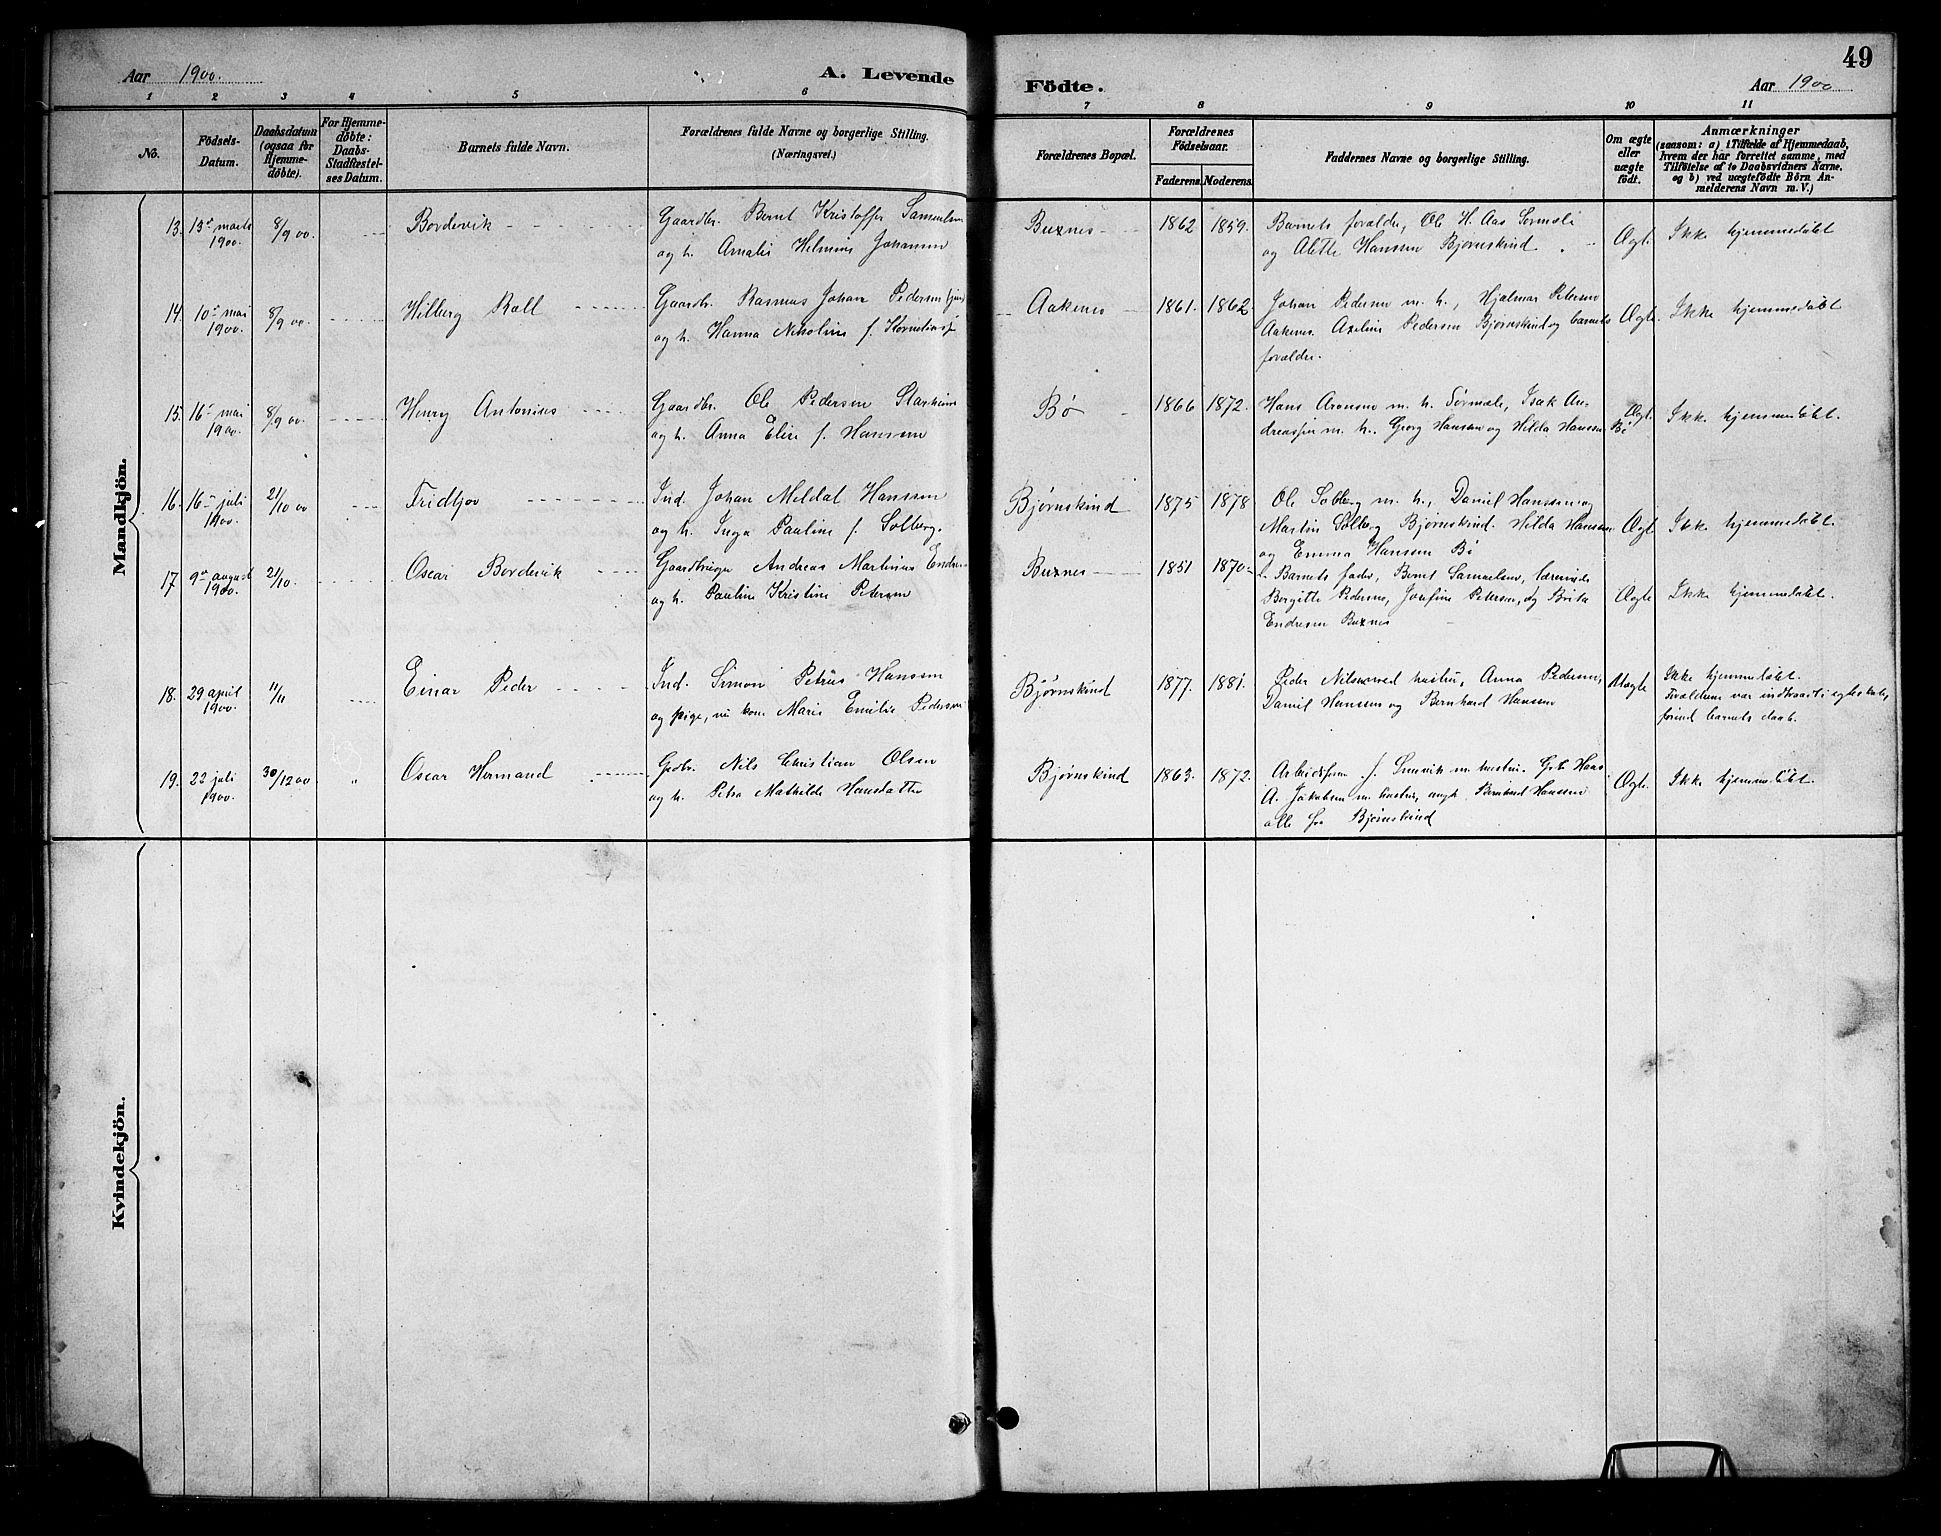 49
Aar 1900.
A. Levende Födte.
Aar 1900
1 2 3 4 5 6 7 8 9 10 11
No.
Födsels-
Datum.
Daabsdatum
(ogsaa for
Hjemme-
döbte).
For Hjemme-
döbte:
Daabs-
Stadfæstel-
ses Datum.
Barnets fulde Navn.
Forældrenes fulde Navne og borgerlige Stilling.
(Næringsvei.)
Forældrenes Bopæl.
Forældrenes
Födselsaar.
Faderens. Moderens.
Faddernes Navne og borgerlige Stilling.
Om ægte
eller
uægte
födt.
Anmærkninger
(saasom: a) i Tilfælde af Hjemmedaab,
hvem der har forrettet samme, med
Tilföielse af to Daabsvidners Navne,
og b) ved uægtefödte Börn An-
melderens Navn m. V.)
Mandkjön.
13. 13de marts 1900. 8/9 00. Bordevik Buxnes 1862 1859. Ægte Ikke hjemmedøbt
Gaardbr. Bernt Kristoffer Samuelsen
og h. Amalie Helmine Johansen
Barnets forældre, Ole H. Aas Sørmæle
og Alette Hansen Bjørnskind
14. 10de mai 1900. 8/9 00. Hilberg Roll Aakenes 1861. 1862. Ægte. Ikke hjemmedøbt
Gaardbr. Rasmus Johan Pedersen
og h. Hanna Nikoline f.
Johan Pedersen m. h., Hjalmar Petersen
Aakenes. Axeline Pedersen Bjørnskind og barnets
forældre.
15. 16de mai 1900. 8/9 00. Henry Antonius Bø 1866 1872. Ægte. Ikke hjemmedøbt.
Gaardbr. Ole Pedersen
og h. Anna Elise f. Hansen
Hans Aronsen m. h. Sørmæle, Isak An-
dreassen m. h. Georg Hansen og Hilda Hansen Bø
16. 16de juli 1900. 21/10 00 Fridtjov Bjørnskind 1875 1878 Ægte Ikke hjemmedøbt.
Ind. Johan Meldal Hansen
og h. Inga Pauline f. Solberg.
Ole Solberg m. h., Daniel Hansen og
Martin Solberg Bjørnskind. Hilda Hansen
og Emma Hansen Bø
17 9de august 1900. 21/10. Oscar Bordevik Buxnes 1851 1870 Ægte Ikke hjemmedøbt.
Gaardbruger Andreas Martinus
og h. Pauline Kristine Petersen
Barnets fader, Bernt Samuelsen, lærerinde
Bergitte Pedersen, Josefine Petersen, og Berta
Endresen Buxnes
18. 29 april 1900. 11/11 Einar Peder Bjørnskind 1877. 1881. Uægte Ikke hjemmedøbt.
Ind. Simon Petrus Hansen
og pige, nu kone Marie Emilie Pedersen
Peder Nilsen med hustru, Anna Pedersen,
Daniel Hansen og Bernhard Hansen
Forældrene var indtraadt i egteskab,
førend barnets daab.
19. 22 juli 1900. 30/12 00 " Oscar Hermand Bjørnskind 1863. 1872. Ægte. Ikke hjemmedøbt.
Grdbr. Nils Christian Olsen
og h. Petra Mathilde Hansdatter
Arbeidsform. J. m. hustru. Grb. Hans
A. Jakobsen m. hustru, ungk. Bernhard Hansen
alle fra Bjørnskind
Kvindekjön.